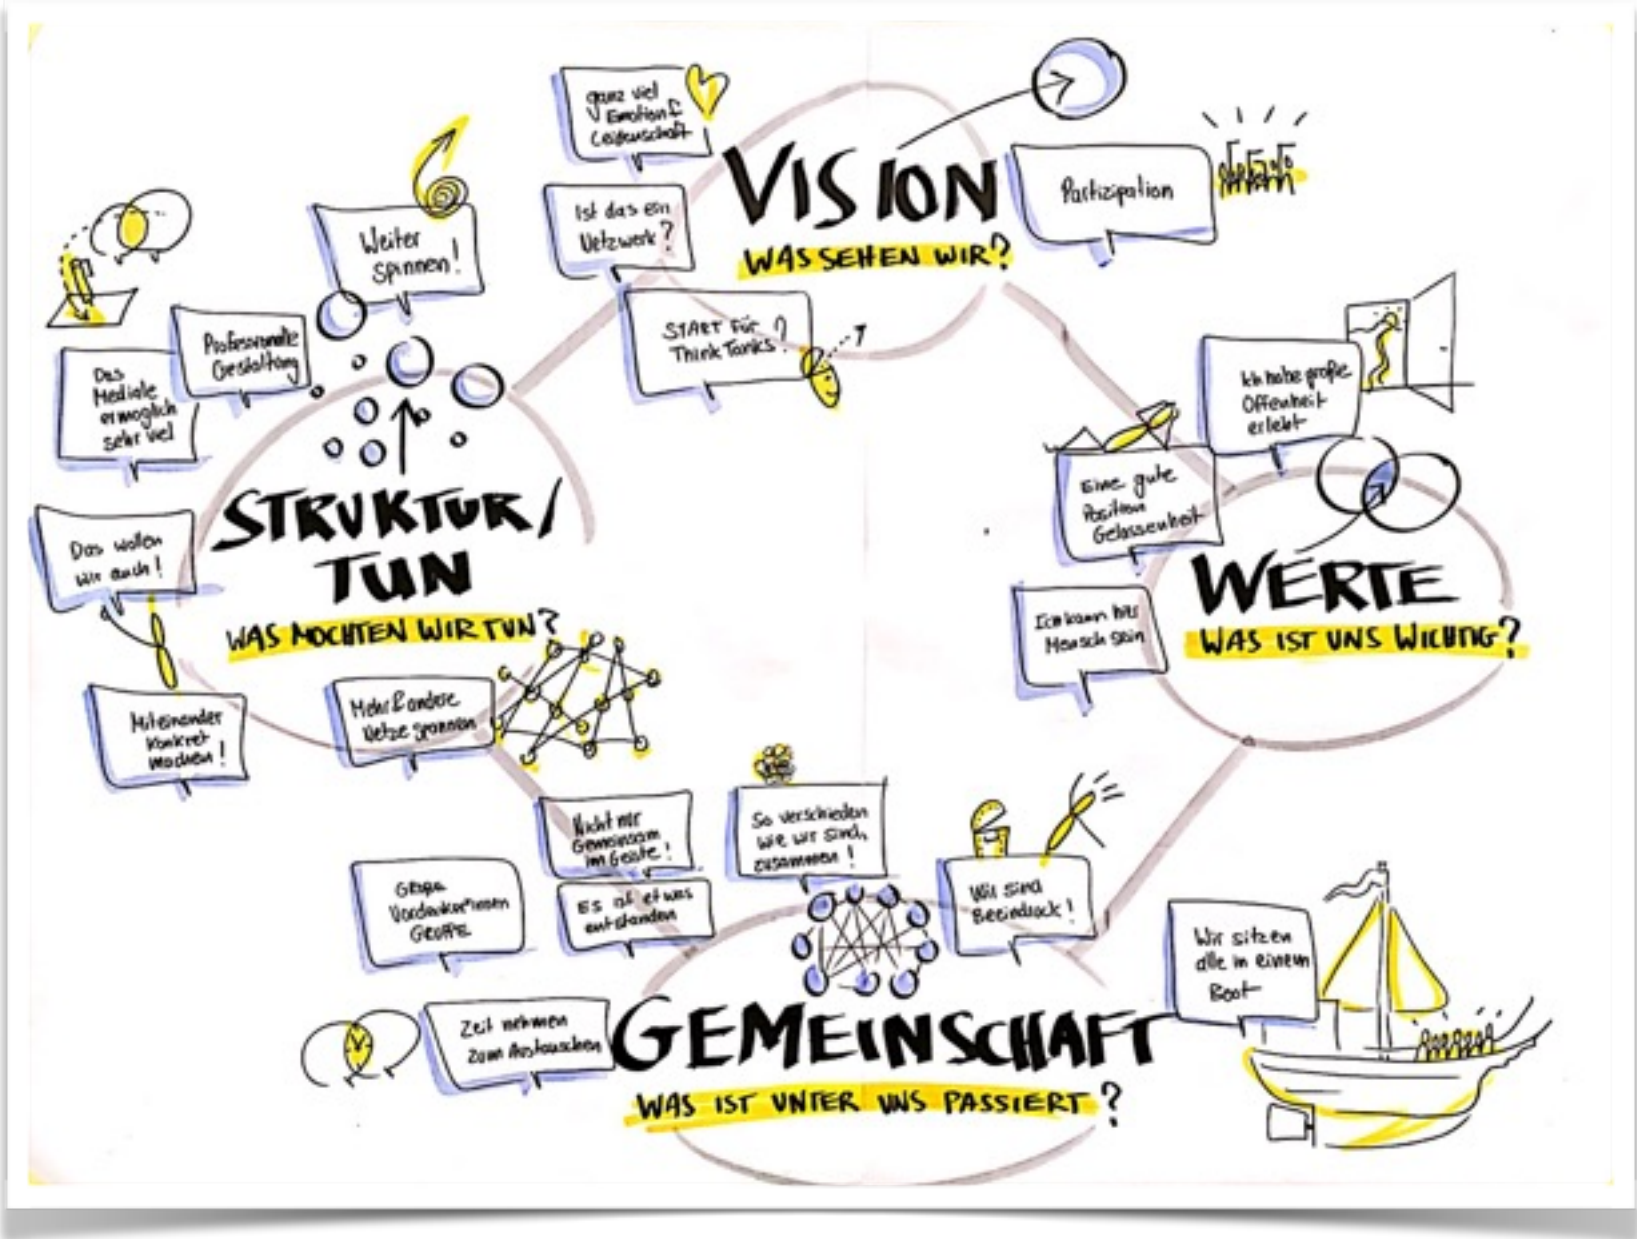 ganz viel
Emotion &
Leidenschaft
Ist das ein
Netzwerk?
START für
Think Tanks?
VISION
WAS SEHEN WIR?
Partizipation
Weiter
spinnen!
Professionelle
Gestaltung
Das
Mediale
ermöglich
sehr viel
STRUKTUR/
TUN
WAS MÖCHTEN WIR TUN?
Das wollen
wir auch!
Miteinander
konkret
machen!
Mehr & andere
Netze spannen
Ich habe große
Offenheit
erlebt
Eine gute
Position
Gelassenheit
Ich kann hier
Mensch sein
WERTE
WAS IST UNS WICHTIG?
Nicht nur
Gemeinsam
im Geiste!
Es ist etwas
entstanden
So verschieden
wie wir sind,
zusammen!
Wir sind
Beeindruck!
Vordenker*innen
GRUPPE
Zeit nehmen
zum Austauschen
Wir sitzen
alle in einem
Boot
GEMEINSCHAFT
WAS IST UNTER UNS PASSIERT?